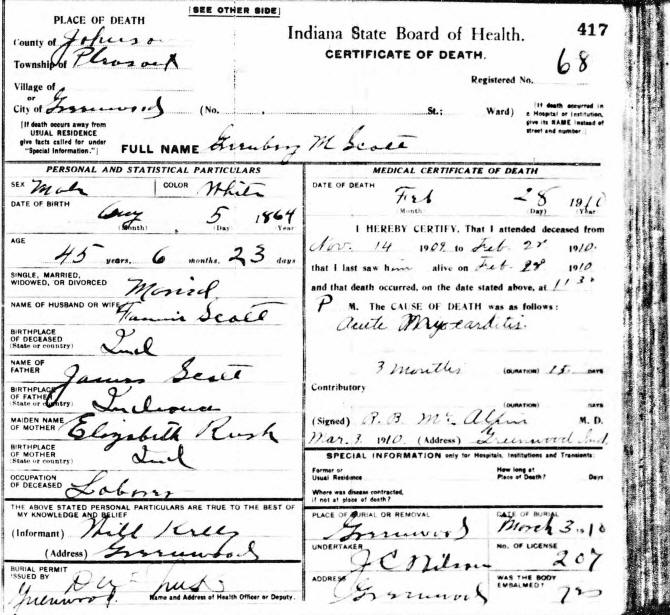 [SEE OTHER SIDE]
PLACE OF DEATH
County of Johnson
Township of Pleasant
Village of
or
City of Greenwood
[If death occurs away from
USUAL RESIDENCE
give facts called for under
"Special Information."]
Indiana State Board of Health.
CERTIFICATE OF DEATH.
417
Registered No. 68
(No. St.; Ward)
[If death occurred in
a Hospital or Institution,
give its NAME instead of
street and number.]
FULL NAME M Scott
PERSONAL AND STATISTICAL PARTICULARS
SEX Male COLOR White
DATE OF BIRTH Aug 5 1864
(Month) (Day) Year
AGE
45 years, 6 months, 23 days
SINGLE, MARRIED,
WIDOWED, OR DIVORCED Married
NAME OF HUSBAND OR WIFE Scott
BIRTHPLACE
OF DECEASED
(State or country) Ind
NAME OF
FATHER James Scott
BIRTHPLACE
OF FATHER
(State or country)
MAIDEN NAME
OF MOTHER Elizabeth Rush
BIRTHPLACE
OF MOTHER
(State or country) Ind
OCCUPATION
OF DECEASED Laborer
THE ABOVE STATED PERSONAL PARTICULARS ARE TRUE TO THE BEST OF
MY KNOWLEDGE AND BELIEF
(Informant) Will
(Address) Greenwood
BURIAL PERMIT
ISSUED BY
Greenwood Name and Address of Health Officer or Deputy.
MEDICAL CERTIFICATE OF DEATH
DATE OF DEATH
Feb 28 1910
Month (Day) Year
I HEREBY CERTIFY, That I attended deceased from
Nov. 14 1909 to Feb. 28 1910.
that I last saw him alive on Feb 28 1910
and that death occurred, on the date stated above, at 11 30
P M. The CAUSE OF DEATH was as follows:
Acute Myocarditis.
3 Months (DURATION) 15 DAYS
Contributory
(DURATION) DAYS
(Signed) R. B. M. D.
Mar. 3. 1910. (Address) Greenwood Ind.
SPECIAL INFORMATION only for Hospitals, Institutions and Transients:
Former or
Usual Residence
How long at
Place of Death? Days
Where was disease contracted,
if not at place of death?
PLACE OF BURIAL OR REMOVAL
Greenwood
DATE OF BURIAL
March 3 10
UNDERTAKER
J C Wilson
No. OF LICENSE
207
ADDRESS
Greenwood
WAS THE BODY
EMBALMED? yes